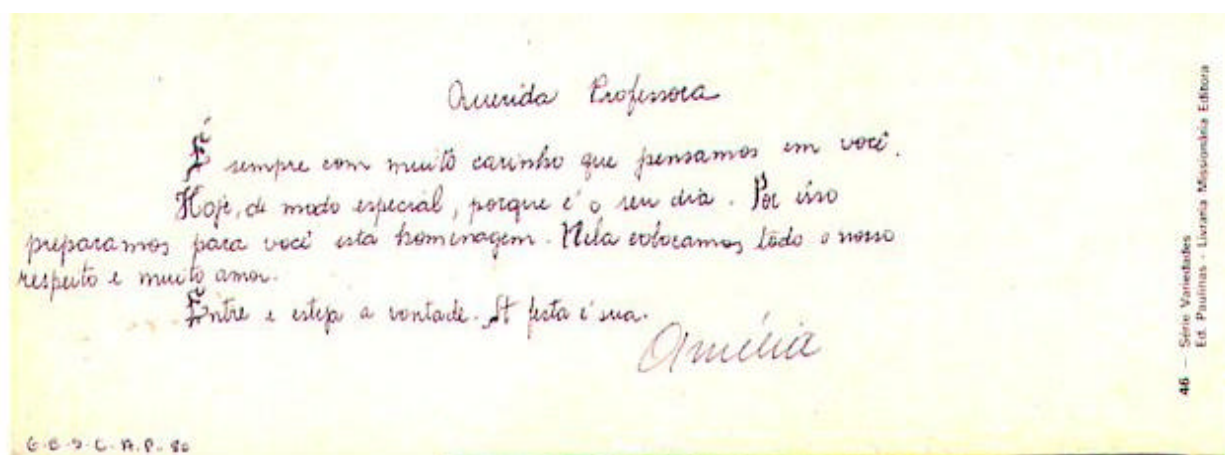 Querida Professora
É sempre com muito carinho que pensamos em você.
Hoje, de modo especial, porque é o seu dia. Por isso
preparamos para você esta homenagem. Nela colocamos todo o nosso
respeito e muito amor.
Entre e esteja a vontade. A festa é sua.
Amélia
46 - Série Variedades
Ed. Paulinas - Livraria Missionária Editora